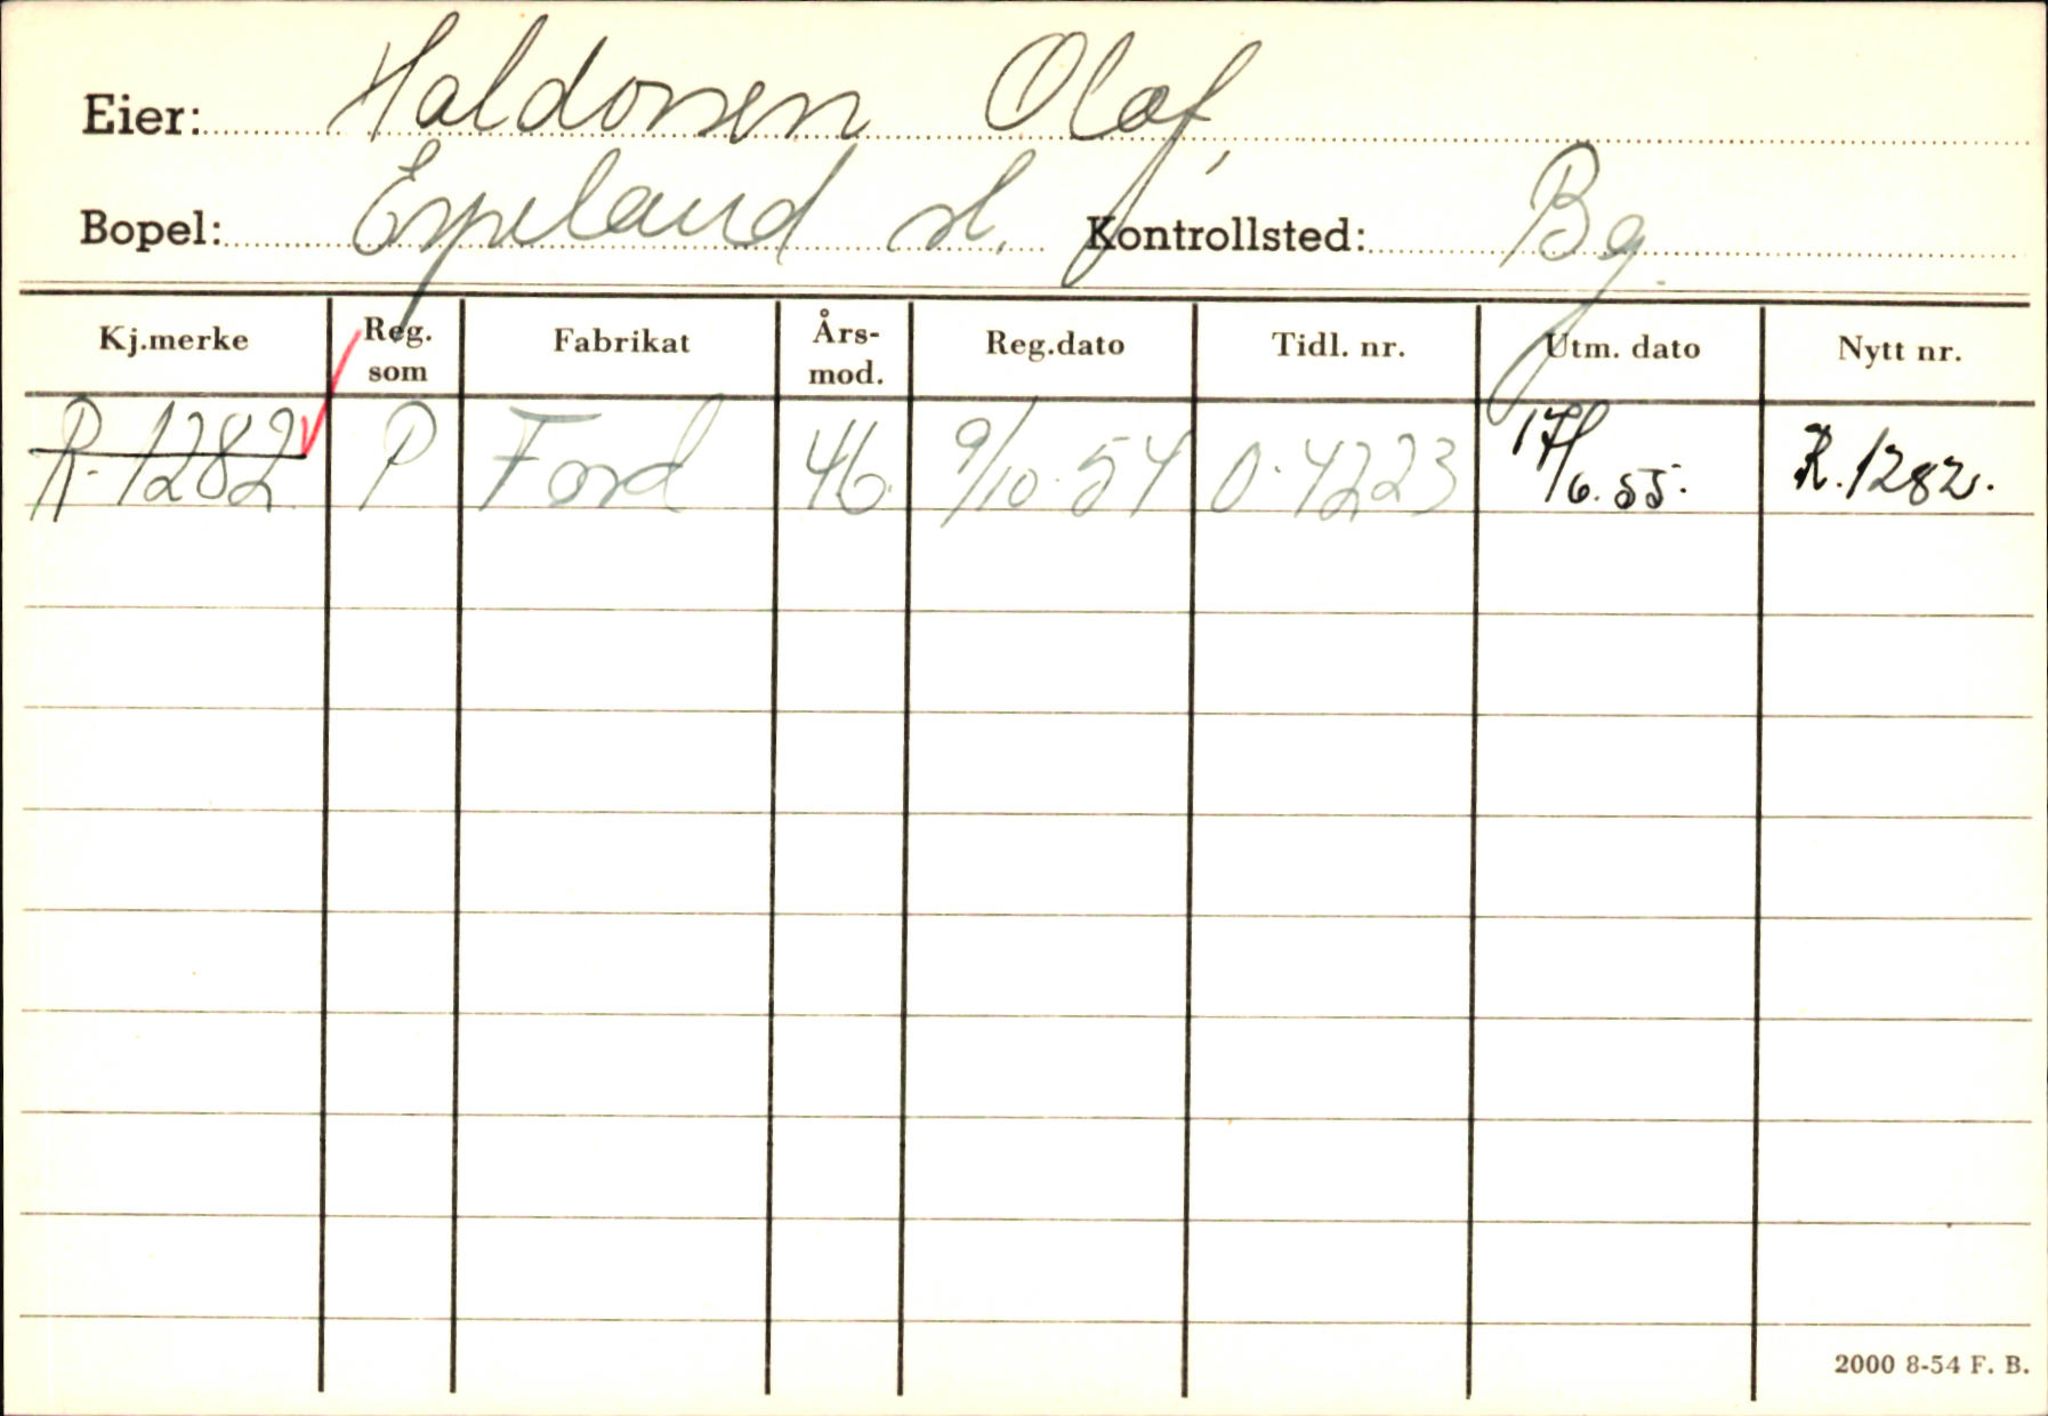 Eier: Haldorsen Olaf,
Bopel: Espeland st. Kontrollsted: Bg.
Kj.merke Reg. som Fabrikat Års-mod. Reg.dato Tidl. nr. Utm. dato Nytt nr.
R-1282 P Ford 46. 9/10-54 O-4223 17/6.55. R.1282.
2000 8-54 F. B.